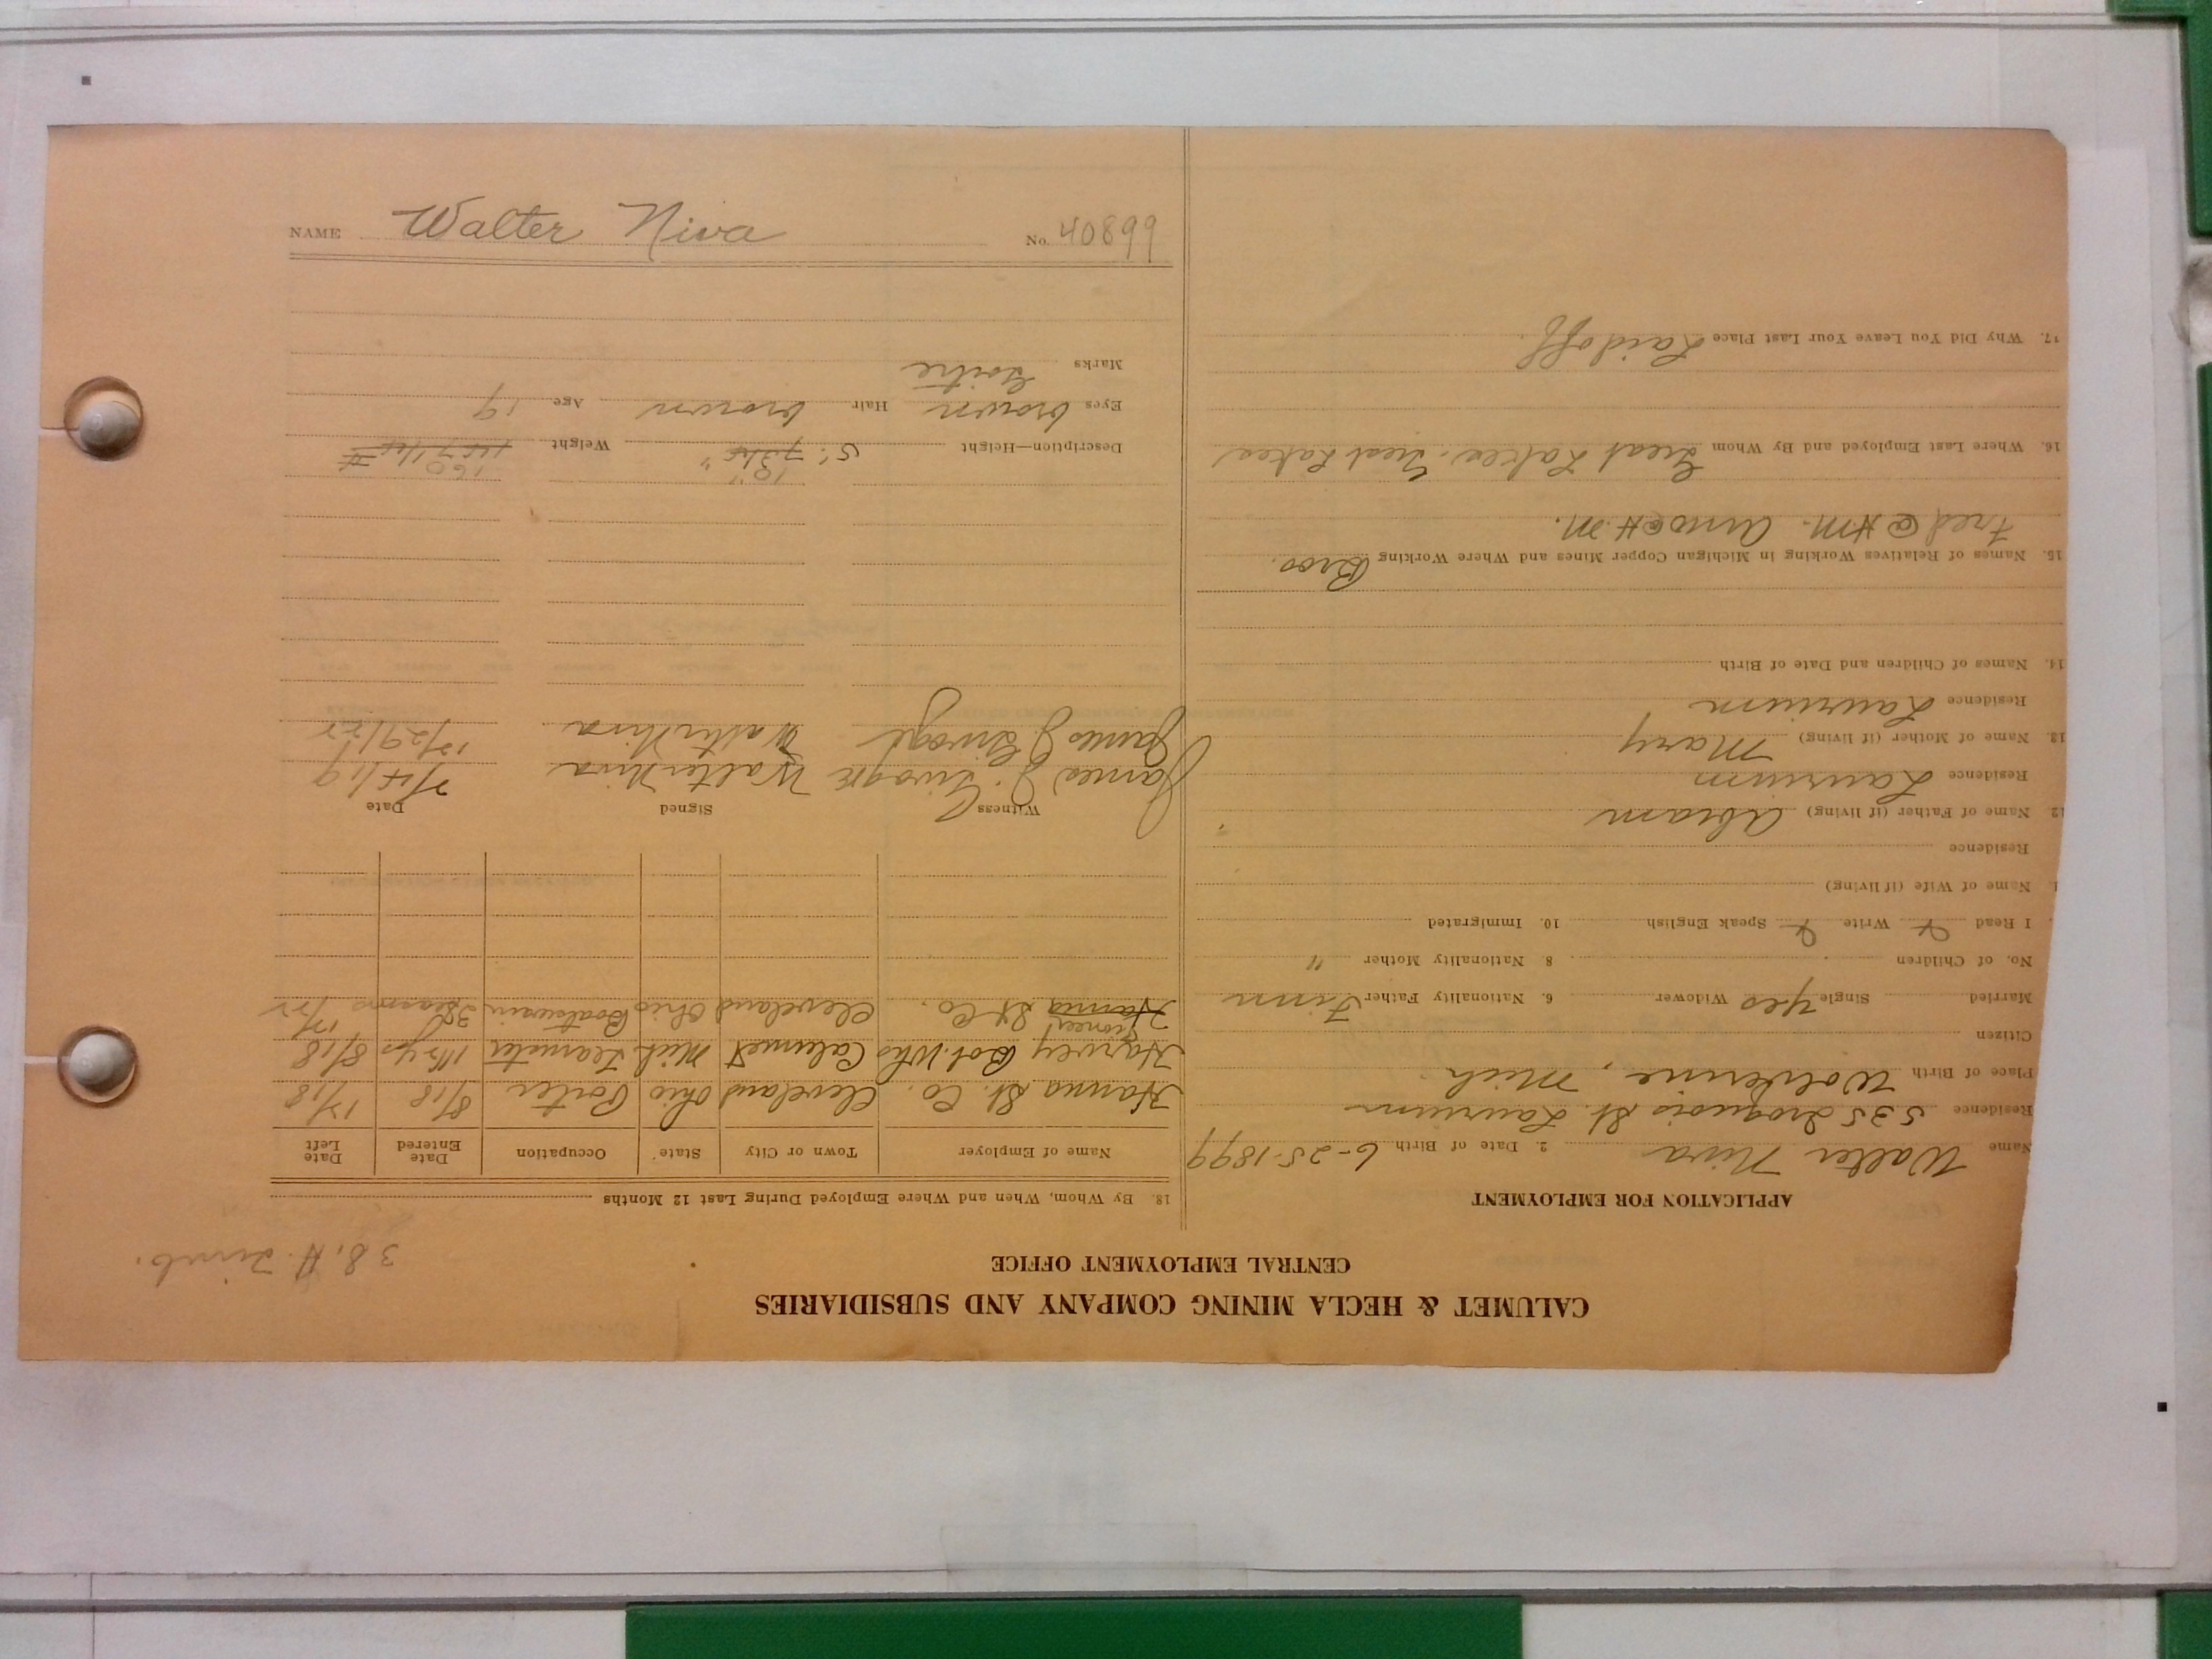 CALUMET & HECLA MINING COMPANY AND SUBSIDIARIES
CENTRAL EMPLOYMENT OFFICE
38. H.
APPLICATION FOR EMPLOYMENT
Name Walter Niva 2. Date of Birth 6-25-1899
Residence 535 Iroquois St. Laurium
Place of Birth Wolverine, Mich
Citizen
Married Single yes Widower 6. Nationality Father Finn
No. of Children 8. Nationality Mother "
I Read Write Speak English 10. Immigrated
Name of Wife (if living)
Residence
12. Name of Father (if living) Abram
Residence Laurium
13. Name of Mother (if living) Mary
Residence Laurium
14. Names of Children and Date of Birth
15. Names of Relatives Working in Michigan Copper Mines and Where Working Bros.
Fred C H.M. Arno C H.M.
16. Where Last Employed and By Whom Great Lakes. Great Lakes
17. Why Did You Leave Your Last Place Laid off.
18. By Whom, When and Where Employed During Last 12 Months
Name of Employer Town or City State Occupation Date Entered Date Left
Hanna St. Co. Cleveland Ohio Porter 8/18 12/18
Harvey Bot. Wks Calumet Mich Teamster 1 1/2 yrs 8/18
Pioneer
Hanna St Co. Cleveland Ohio Boatswain 3 Seasons 12/22
Witness Signed Date
James J. Walter Niva 2/4/19
James J. Walter Niva 12/29/22
Description—Height 5' 7 3/4" 10" Weight 147 1/4 160 #
Eyes brown Hair brown Age 19
Marks Goitre
NAME Walter Niva No. 40899